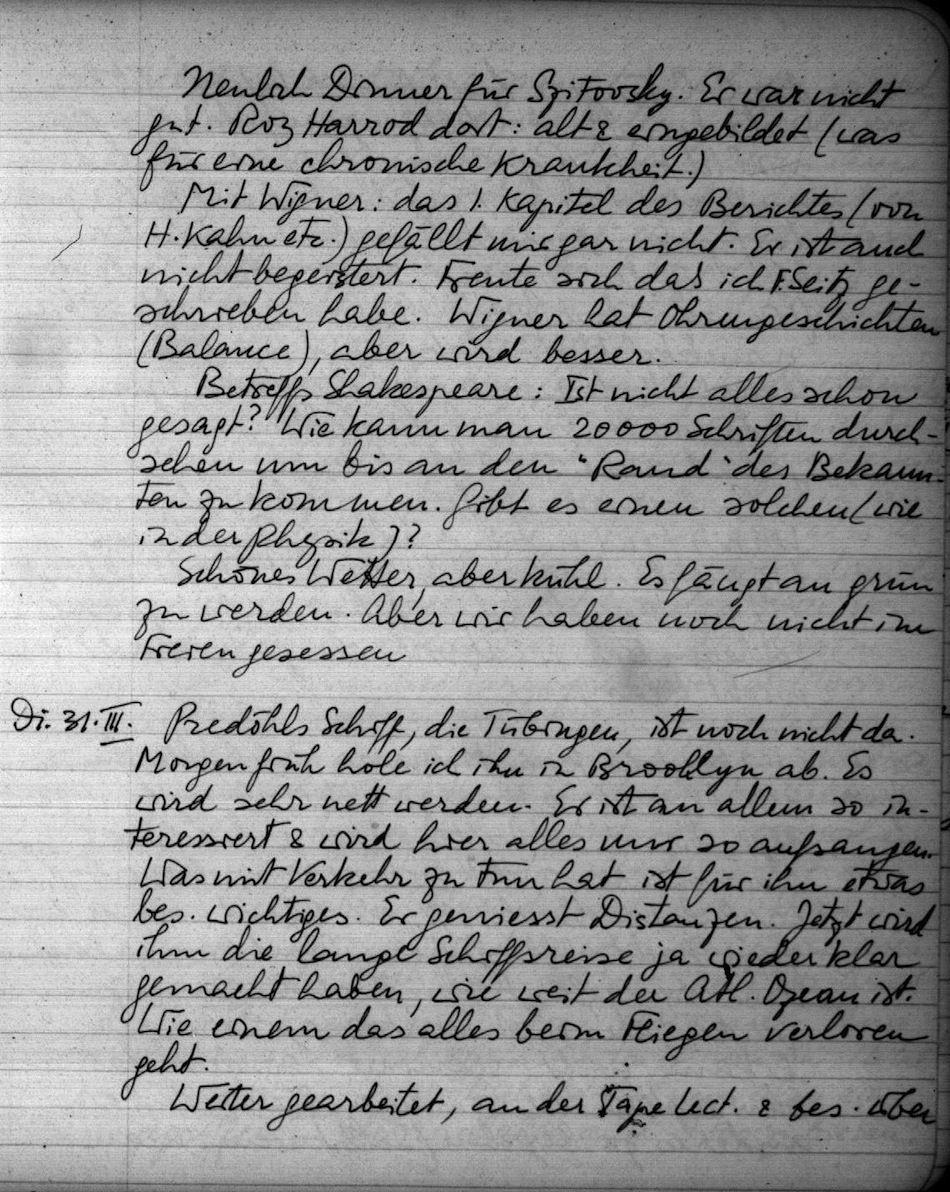 Neulich Dinner für Szitovsky. Er war nicht
gut. Roy Harrod dort: alt & eingebildet (was
für eine chronische Krankheit.)
Mit Wigner: das 1. Kapitel des Berichtes (von
H. Kahn etc.) gefällt mir gar nicht. Er ist auch
nicht begeistert. Freute sich das ich F. Seitz ge-
schrieben habe. Wigner hat Ohrengeschichten
(Balance), aber wird besser.
Betreffs Shakespeare: Ist nicht alles schon
gesagt? Wie kann man 20000 Schriften durch-
sehen um bis an den "Rand" des Bekann-
ten zu kommen. Gibt es einen solchen (wie
in der Physik)?
Schönes Wetter, aber kühl. Es fängt an grün
zu werden. Aber wir haben noch nicht im
Freien gesessen
Di. 31. III. Predöhls Schiff, die Tübingen, ist noch nicht da.
Morgen früh hole ich ihn in Brooklyn ab. Es
wird sehr nett werden. Er ist an allem so in-
teressiert & wird hier alles nur so aufsaugen.
Was mit Verkehr zu tun hat ist für ihn etwas
bes. wichtiges. Er geniesst Distanzen. Jetzt wird
ihm die lange Schiffsreise ja wieder klar
gemacht haben, wie weit der Atl. Ozean ist.
Wie einem das alles beim Fliegen verloren
geht.
Weiter gearbeitet, an der Tape Lect. & bes. über